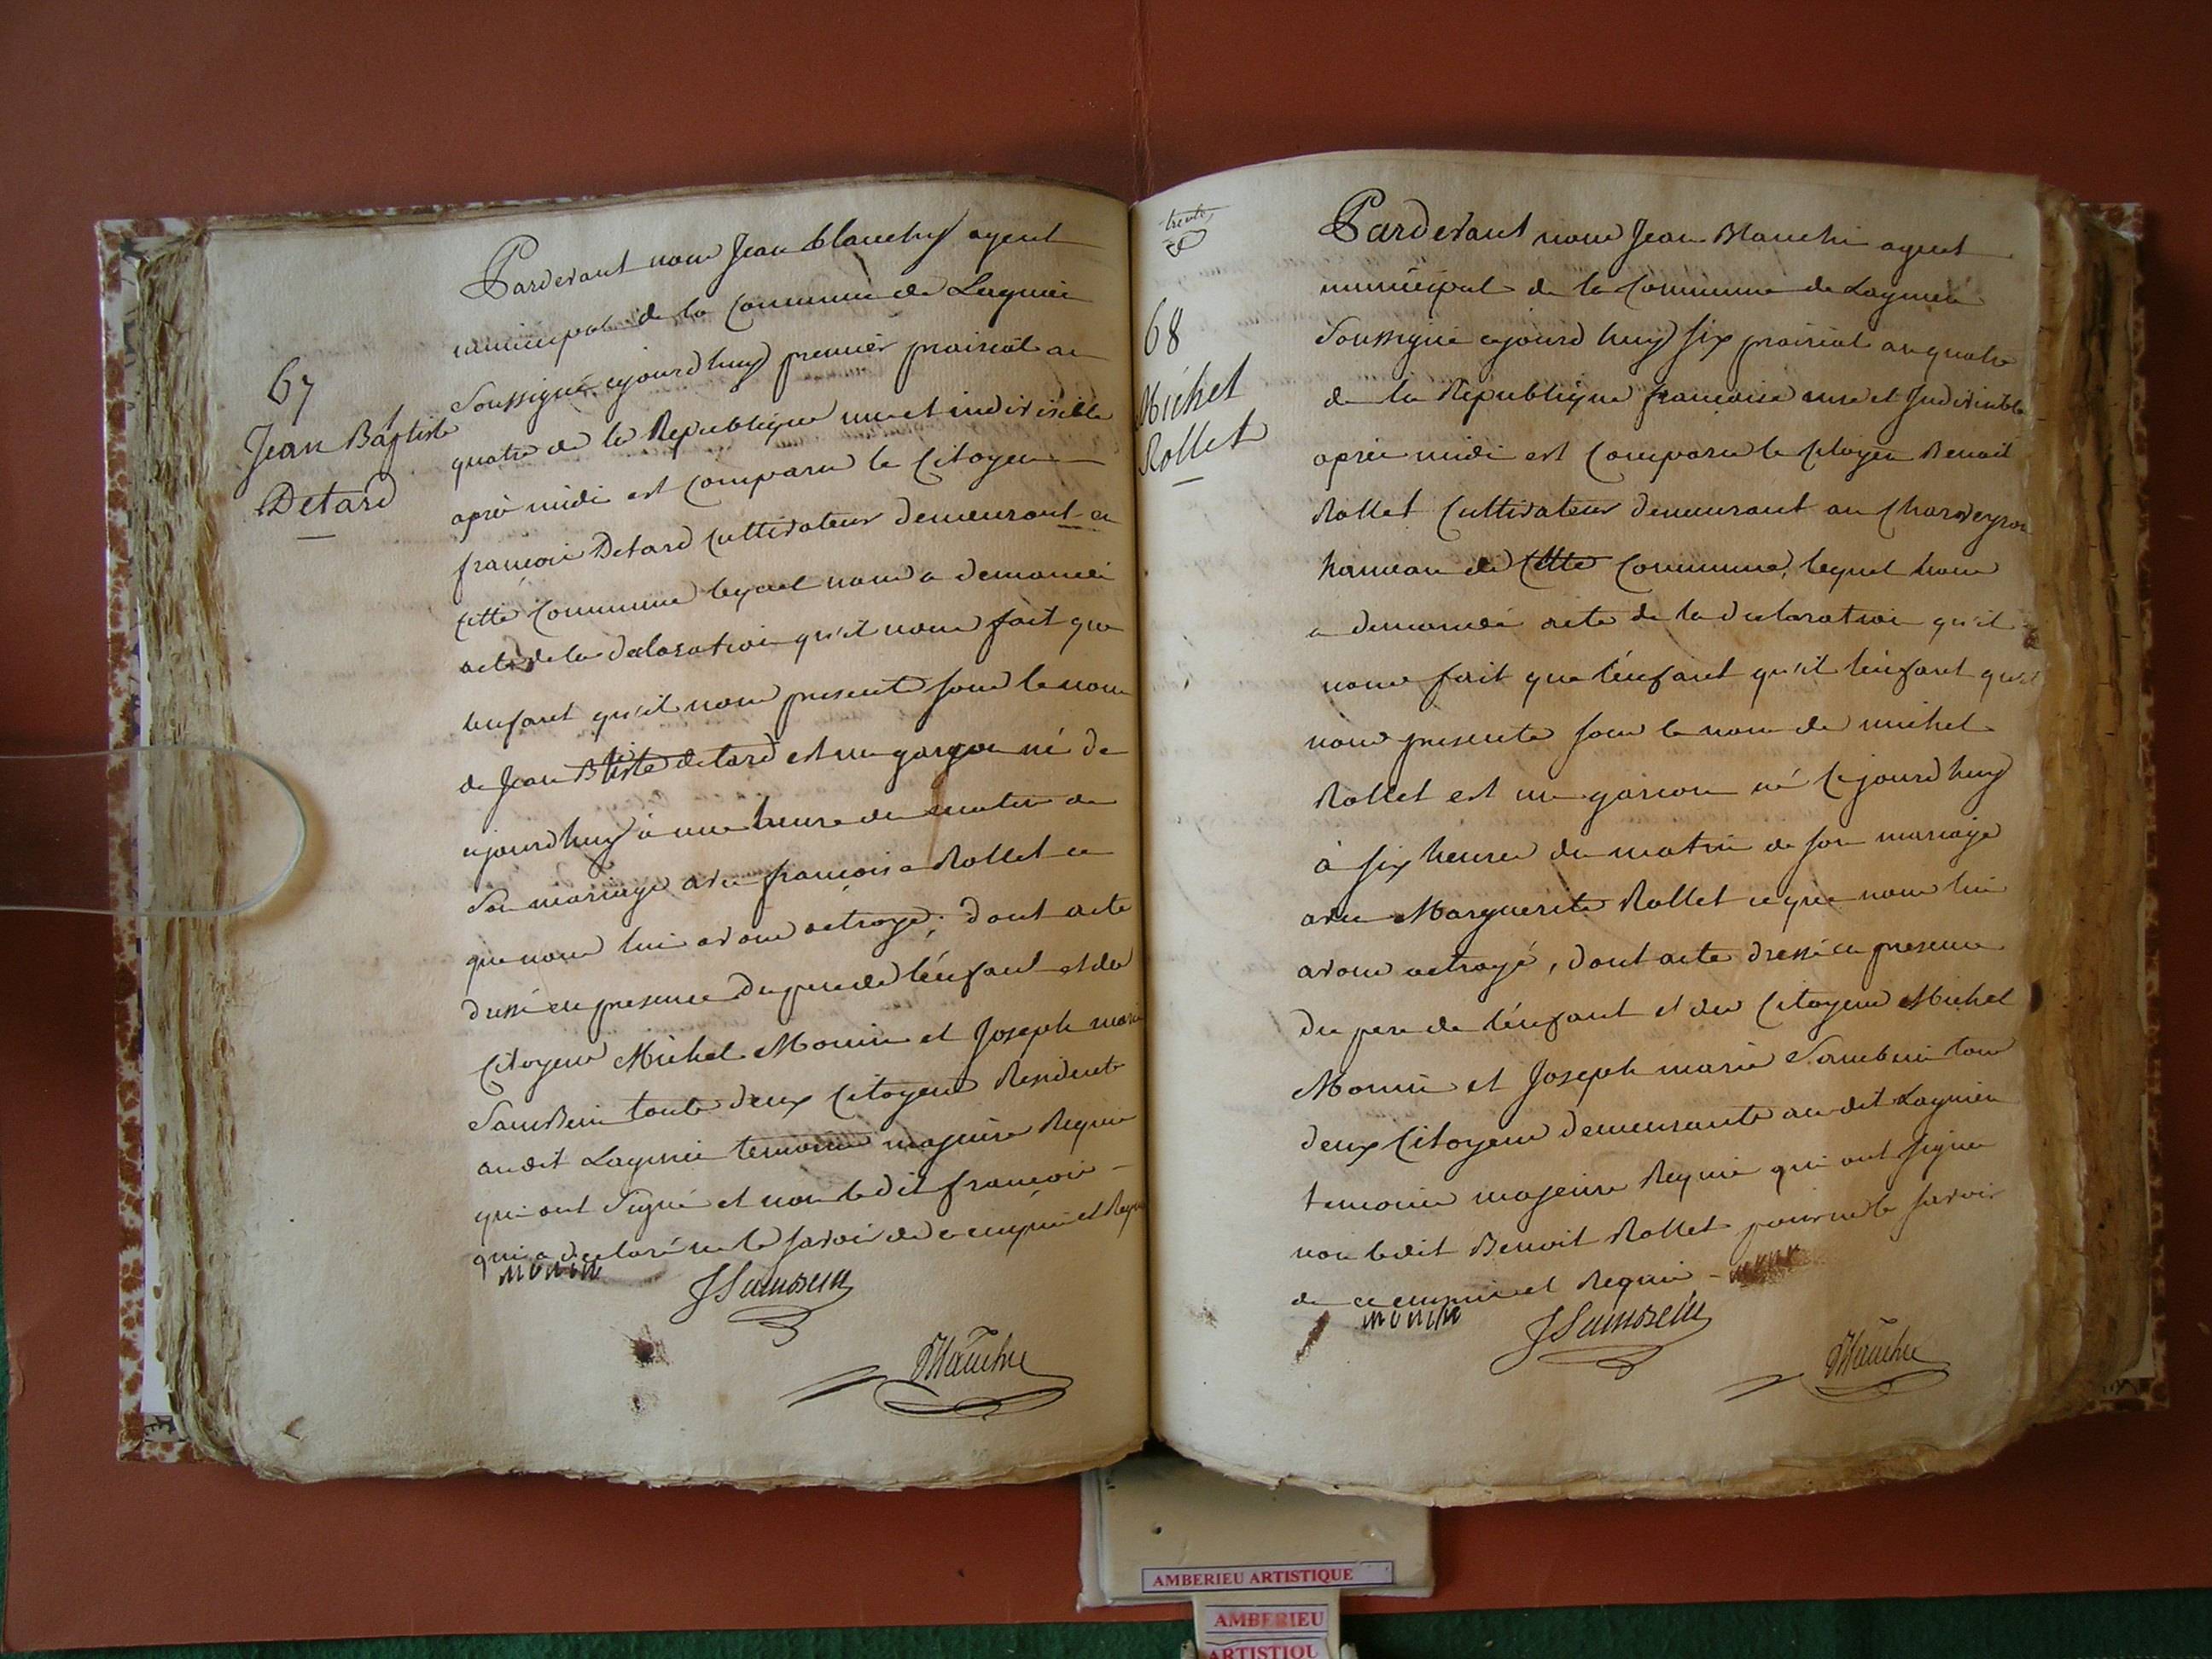 67
Jean Baptiste
Detard
Pardevant nous Jean blanchy agent
municipal de la Commune de Lagnieu
Soussigné cejourd'huy premier prairial an
quatre de la Republique une et indivisible
après midi est comparu le Citoyen
françois Detard Cultivateur demeurant en
cette Commune lequel nous a demandé
acte de la declaration qu'il nous fait que
lenfant qu'il nous presente sous le nom
de Jean Btiste detard est un garçon né de
cejourd'huy à une heure du matin de
son mariage avec françoise Rollet ce
que nous lui avons octroyé; dont acte
dressé en presence du pere de l'enfant et des
Citoyens Michel Monin et Joseph marie
Sambein touts deux Citoyens Residents
audit Lagnieu temoins majeurs Requis
qui ont Signé et non le dit françois
qui a declaré ne le savoir de ce enquis et Requis
monin
JSambein
Blanchy
trente
68
Michel
Rollet
Pardevant nous Jean Blanchi agent
municipal de la Commune de Lagnieu
Soussigné cejourd'huy six prairial an quatre
de la Republique francaise une et Indivisible
après midi est Comparu le Citoyen Benoit
Rollet Cultivateur demeurant au Charveyron
hameau de Cette Commune, lequel nous
a demandé acte de la declaration qu'il
nous fait que l'enfant qu'il l'enfant qu'il
nous presente sous le nom de michel
Rollet est un garcon né cejourd'huy
à six heures du matin de son mariage
avec Marguerite Rollet ce que nous lui
avons octroyé, dont acte dressé en presence
du pere de l'enfant et des Citoyens Michel
Monin et Joseph marie Sambein tous
deux Citoyens demeurants au dit Lagnieu
temoins majeurs Requis qui ont signé
non ledit Benoit Rollet pour ne le savoir
de ce enquis et Requis
monin
JSambein
Blanchy
AMBERIEU ARTISTIQUE
AMBERIEU
ARTISTIQU